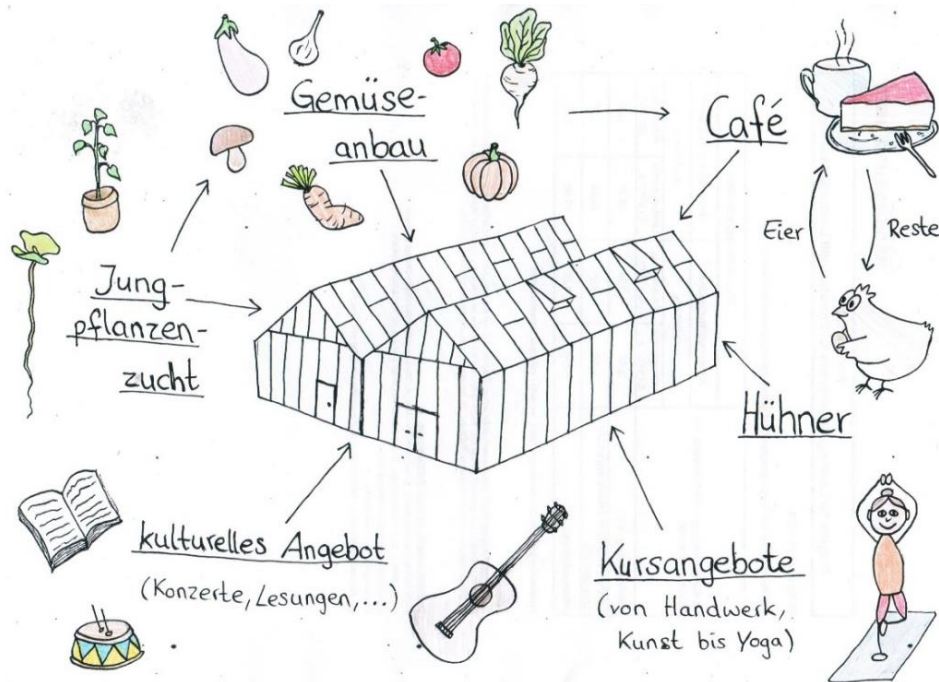 Gemüse-
anbau
Café
Eier
Reste
Jung-
pflanzen-
zucht
Hühner
kulturelles Angebot
(Konzerte, Lesungen,...)
Kursangebote
(von Handwerk,
Kunst bis Yoga)